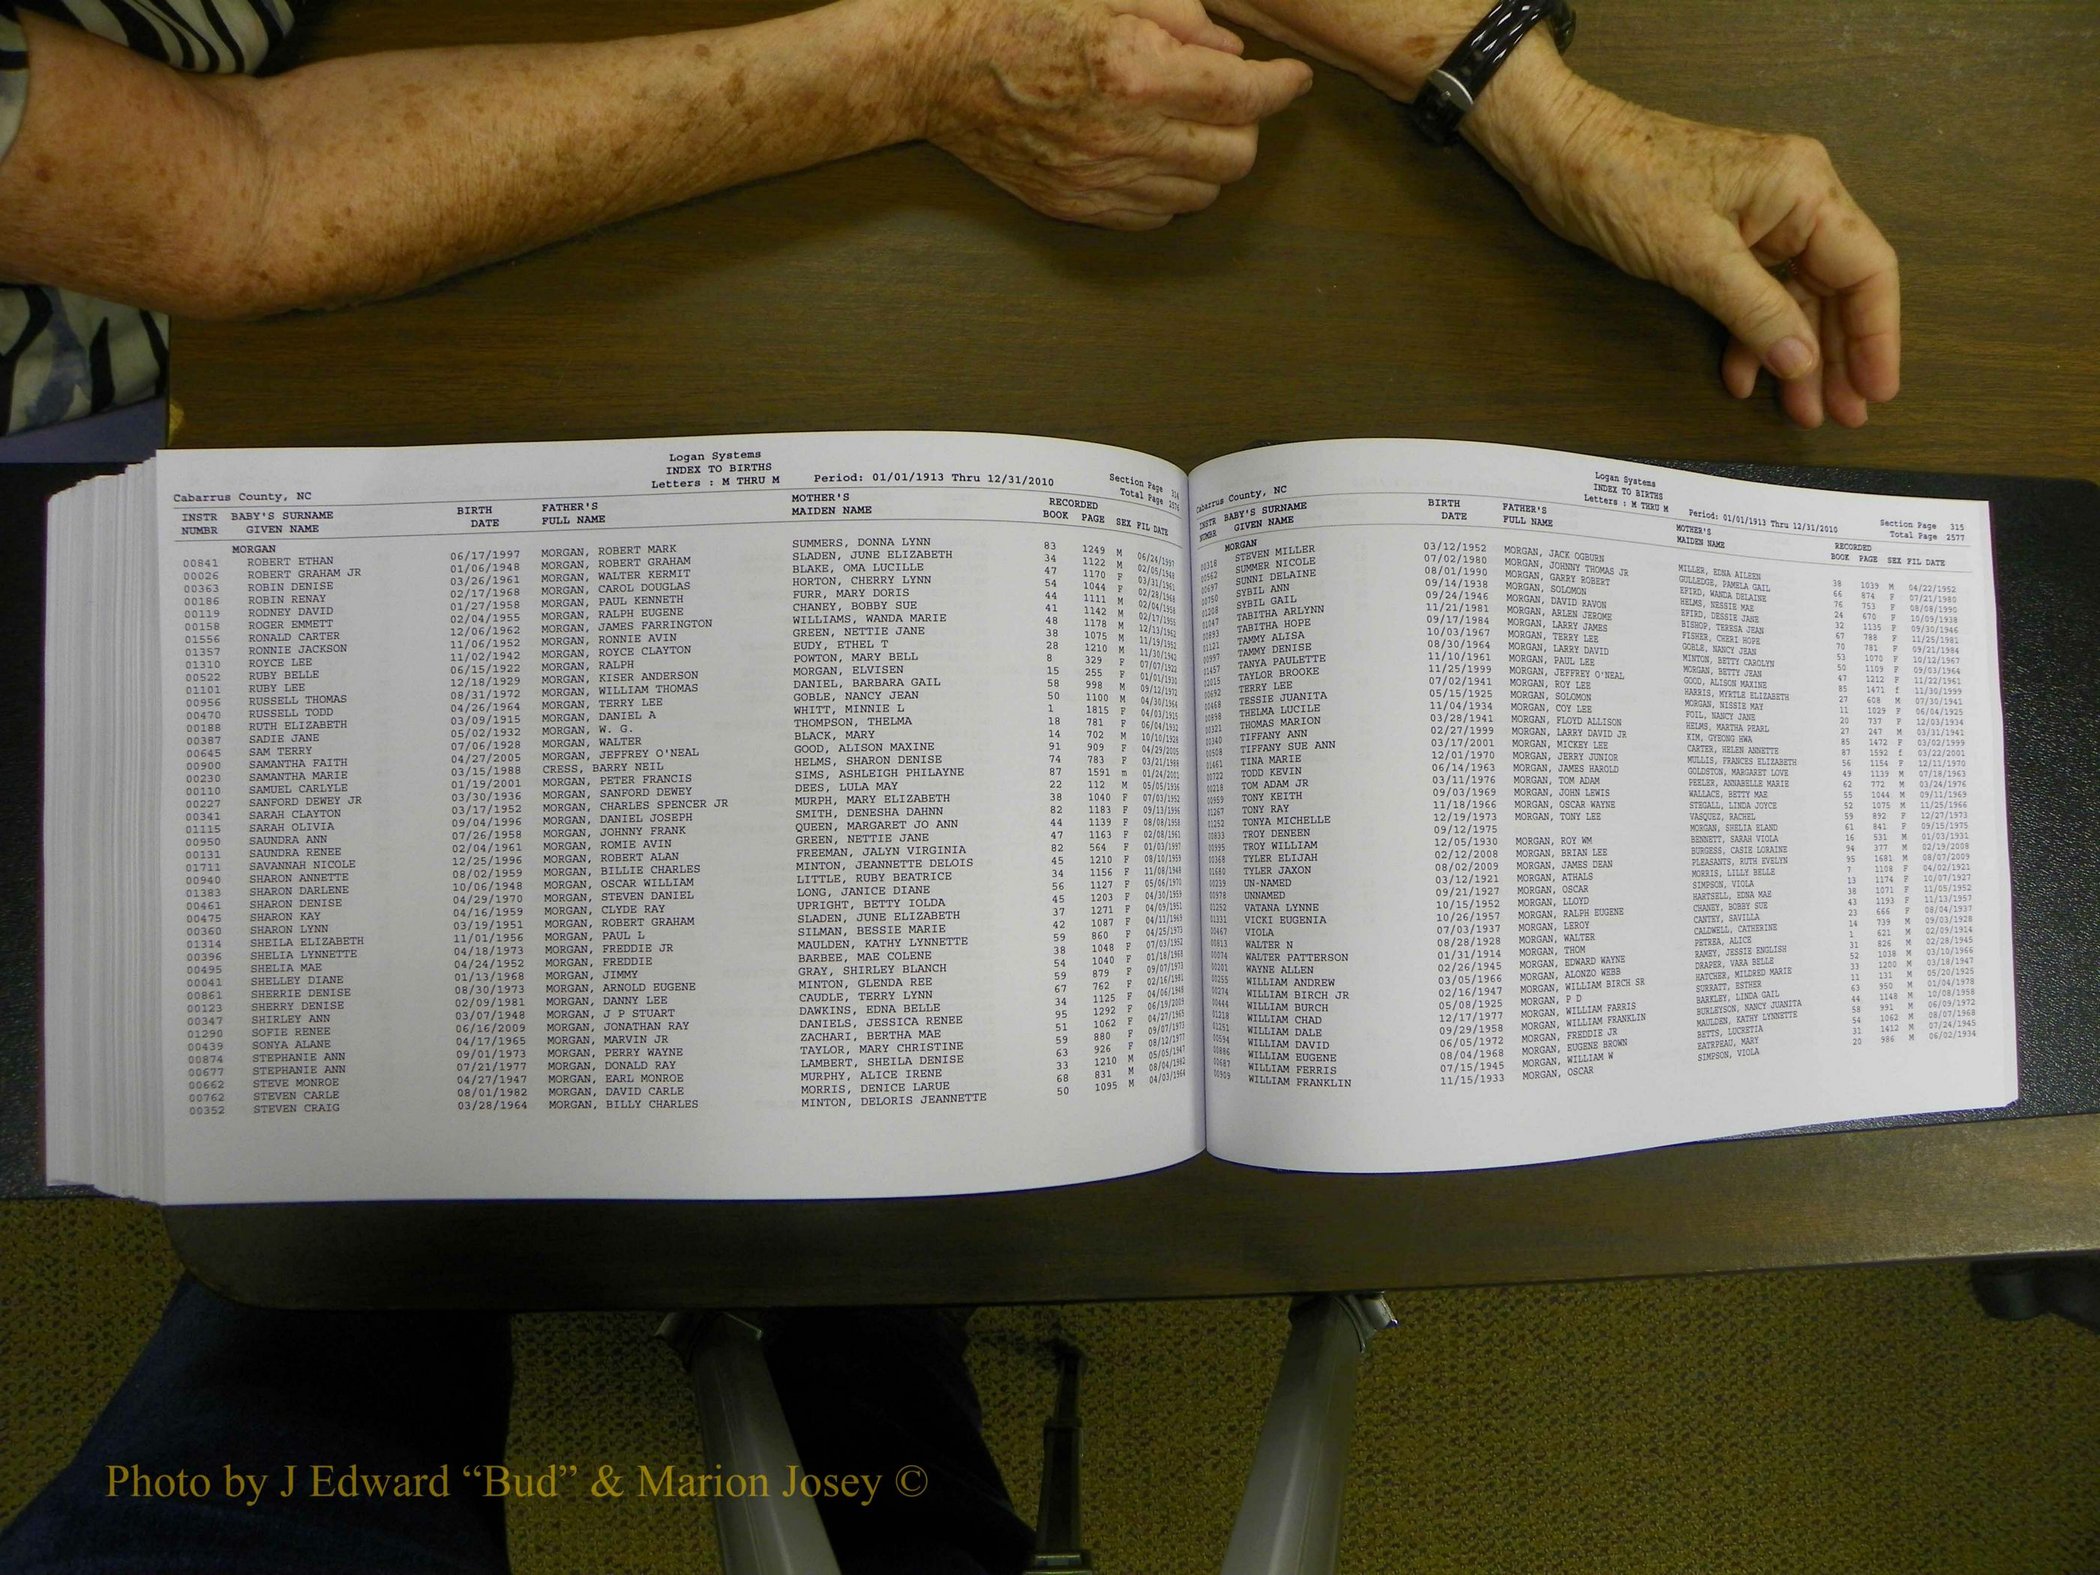 Logan Systems
INDEX TO BIRTHS
Cabarrus County, NC Letters : M THRU M Period: 01/01/1913 Thru 12/31/2010 Section Page 314
Total Page 2576
INSTR BABY'S SURNAME BIRTH FATHER'S MOTHER'S RECORDED
NUMBR GIVEN NAME DATE FULL NAME MAIDEN NAME BOOK PAGE SEX FIL DATE
MORGAN
00841 ROBERT ETHAN 06/17/1997 MORGAN, ROBERT MARK SUMMERS, DONNA LYNN 83 1249 M 06/24/1997
00026 ROBERT GRAHAM JR 01/06/1948 MORGAN, ROBERT GRAHAM SLADEN, JUNE ELIZABETH 34 1122 M 02/05/1948
00363 ROBIN DENISE 03/26/1961 MORGAN, WALTER KERMIT BLAKE, OMA LUCILLE 47 1170 F 03/31/1961
00186 ROBIN RENAY 02/17/1968 MORGAN, CAROL DOUGLAS HORTON, CHERRY LYNN 54 1044 F 02/28/1968
00119 RODNEY DAVID 01/27/1958 MORGAN, PAUL KENNETH FURR, MARY DORIS 44 1111 M 02/04/1958
00158 ROGER EMMETT 02/04/1955 MORGAN, RALPH EUGENE CHANEY, BOBBY SUE 41 1142 M 02/17/1955
01556 RONALD CARTER 12/06/1962 MORGAN, JAMES FARRINGTON WILLIAMS, WANDA MARIE 48 1178 M 12/13/1962
01357 RONNIE JACKSON 11/06/1952 MORGAN, RONNIE AVIN GREEN, NETTIE JANE 38 1075 M 11/19/1952
01310 ROYCE LEE 11/02/1942 MORGAN, ROYCE CLAYTON EUDY, ETHEL T 28 1210 M 11/30/1942
00522 RUBY BELLE 06/15/1922 MORGAN, RALPH POWTON, MARY BELL 8 329 F 07/07/1922
01101 RUBY LEE 12/18/1929 MORGAN, KISER ANDERSON MORGAN, ELVISEN 15 255 F 01/01/1930
00956 RUSSELL THOMAS 08/31/1972 MORGAN, WILLIAM THOMAS DANIEL, BARBARA GAIL 58 998 M 09/12/1972
00470 RUSSELL TODD 04/26/1964 MORGAN, TERRY LEE GOBLE, NANCY JEAN 50 1100 M 04/30/1964
00188 RUTH ELIZABETH 03/09/1915 MORGAN, DANIEL A WHITT, MINNIE L 1 1815 F 04/03/1915
00387 SADIE JANE 05/02/1932 MORGAN, W. G. THOMPSON, THELMA 18 781 F 06/04/1932
00645 SAM TERRY 07/06/1928 MORGAN, WALTER BLACK, MARY 14 702 M 10/10/1928
00900 SAMANTHA FAITH 04/27/2005 MORGAN, JEFFREY O'NEAL GOOD, ALISON MAXINE 91 909 F 04/29/2005
00230 SAMANTHA MARIE 03/15/1988 CRESS, BARRY NEIL HELMS, SHARON DENISE 74 783 F 03/21/1988
00110 SAMUEL CARLYLE 01/19/2001 MORGAN, PETER FRANCIS SIMS, ASHLEIGH PHILAYNE 87 1591 m 01/24/2001
00227 SANFORD DEWEY JR 03/30/1936 MORGAN, SANFORD DEWEY DEES, LULA MAY 22 112 M 05/05/1936
00341 SARAH CLAYTON 03/17/1952 MORGAN, CHARLES SPENCER JR MURPH, MARY ELIZABETH 38 1040 F 07/03/1952
01115 SARAH OLIVIA 09/04/1996 MORGAN, DANIEL JOSEPH SMITH, DENESHA DAHNN 82 1183 F 09/13/1996
00950 SAUNDRA ANN 07/26/1958 MORGAN, JOHNNY FRANK QUEEN, MARGARET JO ANN 44 1139 F 08/08/1958
00131 SAUNDRA RENEE 02/04/1961 MORGAN, ROMIE AVIN GREEN, NETTIE JANE 47 1163 F 02/08/1961
01711 SAVANNAH NICOLE 12/25/1996 MORGAN, ROBERT ALAN FREEMAN, JALYN VIRGINIA 82 564 F 01/03/1997
00940 SHARON ANNETTE 08/02/1959 MORGAN, BILLIE CHARLES MINTON, JEANNETTE DELOIS 45 1210 F 08/10/1959
01383 SHARON DARLENE 10/06/1948 MORGAN, OSCAR WILLIAM LITTLE, RUBY BEATRICE 34 1156 F 11/08/1948
00461 SHARON DENISE 04/29/1970 MORGAN, STEVEN DANIEL LONG, JANICE DIANE 56 1127 F 05/06/1970
00475 SHARON KAY 04/16/1959 MORGAN, CLYDE RAY UPRIGHT, BETTY IOLDA 45 1203 F 04/30/1959
00360 SHARON LYNN 03/19/1951 MORGAN, ROBERT GRAHAM SLADEN, JUNE ELIZABETH 37 1271 F 04/09/1951
01314 SHEILA ELIZABETH 11/01/1956 MORGAN, PAUL L SILMAN, BESSIE MARIE 42 1087 F 04/11/1969
00396 SHELIA LYNNETTE 04/18/1973 MORGAN, FREDDIE JR MAULDEN, KATHY LYNNETTE 59 860 F 04/25/1973
00495 SHELIA MAE 04/24/1952 MORGAN, FREDDIE BARBEE, MAE COLENE 38 1048 F 07/03/1952
00041 SHELLEY DIANE 01/13/1968 MORGAN, JIMMY GRAY, SHIRLEY BLANCH 54 1040 F 01/18/1968
00861 SHERRIE DENISE 08/30/1973 MORGAN, ARNOLD EUGENE MINTON, GLENDA REE 59 879 F 09/07/1973
00123 SHERRY DENISE 02/09/1981 MORGAN, DANNY LEE CAUDLE, TERRY LYNN 67 762 F 02/16/1981
00347 SHIRLEY ANN 03/07/1948 MORGAN, J P STUART DAWKINS, EDNA BELLE 34 1125 F 04/06/1948
01290 SOFIE RENEE 06/16/2009 MORGAN, JONATHAN RAY DANIELS, JESSICA RENEE 95 1292 F 06/19/2009
00439 SONYA ALANE 04/17/1965 MORGAN, MARVIN JR ZACHARI, BERTHA MAE 51 1062 F 04/27/1965
00874 STEPHANIE ANN 09/01/1973 MORGAN, PERRY WAYNE TAYLOR, MARY CHRISTINE 59 880 F 09/07/1973
00677 STEPHANIE ANN 07/21/1977 MORGAN, DONALD RAY LAMBERT, SHEILA DENISE 63 926 F 08/12/1977
00662 STEVE MONROE 04/27/1947 MORGAN, EARL MONROE MURPHY, ALICE IRENE 33 1210 M 05/05/1947
00762 STEVEN CARLE 08/01/1982 MORGAN, DAVID CARLE MORRIS, DENICE LARUE 68 831 M 08/04/1982
00352 STEVEN CRAIG 03/28/1964 MORGAN, BILLY CHARLES MINTON, DELORIS JEANNETTE 50 1095 M 04/03/1964
Logan Systems
INDEX TO BIRTHS
Cabarrus County, NC Letters : M THRU M Period: 01/01/1913 Thru 12/31/2010 Section Page 315
Total Page 2577
INSTR BABY'S SURNAME BIRTH FATHER'S MOTHER'S RECORDED
NUMBR GIVEN NAME DATE FULL NAME MAIDEN NAME BOOK PAGE SEX FIL DATE
MORGAN
00318 STEVEN MILLER 03/12/1952 MORGAN, JACK OGBURN MILLER, EDNA AILEEN 38 1039 M 04/22/1952
00562 SUMMER NICOLE 07/02/1980 MORGAN, JOHNNY THOMAS JR GULLEDGE, PAMELA GAIL 66 874 F 07/21/1980
00697 SUNNI DELAINE 08/01/1990 MORGAN, GARRY ROBERT EFIRD, WANDA DELAINE 76 753 F 08/08/1990
00750 SYBIL ANN 09/14/1938 MORGAN, SOLOMON HELMS, NESSIE MAE 24 670 F 10/09/1938
01208 SYBIL GAIL 09/24/1946 MORGAN, DAVID RAVON EFIRD, DESSIE JANE 32 1135 F 09/30/1946
01047 TABITHA ARLYNN 11/21/1981 MORGAN, ARLEN JEROME BISHOP, TERESA JEAN 67 788 F 11/25/1981
00893 TABITHA HOPE 09/17/1984 MORGAN, LARRY JAMES FISHER, CHERI HOPE 70 781 F 09/21/1984
01121 TAMMY ALISA 10/03/1967 MORGAN, TERRY LEE GOBLE, NANCY JEAN 53 1070 F 10/12/1967
00997 TAMMY DENISE 08/30/1964 MORGAN, LARRY DAVID MINTON, BETTY CAROLYN 50 1109 F 09/03/1964
01457 TANYA PAULETTE 11/10/1961 MORGAN, PAUL LEE MORGAN, BETTY JEAN 47 1212 F 11/22/1961
02015 TAYLOR BROOKE 11/25/1999 MORGAN, JEFFREY O'NEAL GOOD, ALISON MAXINE 85 1471 f 11/30/1999
00692 TERRY LEE 07/02/1941 MORGAN, ROY LEE HARRIS, MYRTLE ELIZABETH 27 608 M 07/30/1941
00468 TESSIE JUANITA 05/15/1925 MORGAN, SOLOMON MORGAN, NISSIE MAY 11 1029 F 06/04/1925
00898 THELMA LUCILE 11/04/1934 MORGAN, COY LEE FOIL, NANCY JANE 20 737 F 12/03/1934
00321 THOMAS MARION 03/28/1941 MORGAN, FLOYD ALLISON HELMS, MARTHA PEARL 27 247 M 03/31/1941
00340 TIFFANY ANN 02/27/1999 MORGAN, LARRY DAVID JR KIM, GYEONG HWA 85 1472 F 03/02/1999
00508 TIFFANY SUE ANN 03/17/2001 MORGAN, MICKEY LEE CARTER, HELEN ANNETTE 87 1592 f 03/22/2001
01461 TINA MARIE 12/01/1970 MORGAN, JERRY JUNIOR MULLIS, FRANCES ELIZABETH 56 1154 F 12/11/1970
00722 TODD KEVIN 06/14/1963 MORGAN, JAMES HAROLD GOLDSTON, MARGARET LOVE 49 1139 M 07/18/1963
00218 TOM ADAM JR 03/11/1976 MORGAN, TOM ADAM PEELER, ANNABELLE MARIE 62 772 M 03/24/1976
00959 TONY KEITH 09/03/1969 MORGAN, JOHN LEWIS WALLACE, BETTY MAE 55 1044 M 09/11/1969
01267 TONY RAY 11/18/1966 MORGAN, OSCAR WAYNE STEGALL, LINDA JOYCE 52 1075 M 11/25/1966
01252 TONYA MICHELLE 12/19/1973 MORGAN, TONY LEE VASQUEZ, RACHEL 59 892 F 12/27/1973
00833 TROY DENEEN 09/12/1975 MORGAN, SHELIA ELAND 61 841 F 09/15/1975
00995 TROY WILLIAM 12/05/1930 MORGAN, ROY WM BENNETT, SARAH VIOLA 16 531 M 01/03/1931
00368 TYLER ELIJAH 02/12/2008 MORGAN, BRIAN LEE BURGESS, CASIE LORAINE 94 377 M 02/19/2008
01680 TYLER JAXON 08/02/2009 MORGAN, JAMES DEAN PLEASANTS, RUTH EVELYN 95 1681 M 08/07/2009
00239 UN-NAMED 03/12/1921 MORGAN, ATHALS MORRIS, LILLY BELLE 7 1108 F 04/02/1921
00978 UNNAMED 09/21/1927 MORGAN, OSCAR SIMPSON, VIOLA 13 1174 F 10/07/1927
01252 VATANA LYNNE 10/15/1952 MORGAN, LLOYD HARTSELL, EDNA MAE 38 1071 F 11/05/1952
01331 VICKI EUGENIA 10/26/1957 MORGAN, RALPH EUGENE CHANEY, BOBBY SUE 43 1193 F 11/13/1957
00467 VIOLA 07/03/1937 MORGAN, LEROY CANTEY, SAVILLA 23 666 F 08/04/1937
00613 WALTER N 08/28/1928 MORGAN, WALTER CALDWELL, CATHERINE 14 739 M 09/03/1928
00074 WALTER PATTERSON 01/31/1914 MORGAN, THOM PETREA, ALICE 1 621 M 02/09/1914
00201 WAYNE ALLEN 02/26/1945 MORGAN, EDWARD WAYNE RAMEY, JESSIE ENGLISH 31 826 M 02/28/1945
00255 WILLIAM ANDREW 03/05/1966 MORGAN, ALONZO WEBB DRAPER, VARA BELLE 52 1038 M 03/10/1966
00274 WILLIAM BIRCH JR 02/16/1947 MORGAN, WILLIAM BIRCH SR HATCHER, MILDRED MARIE 33 1200 M 03/18/1947
00444 WILLIAM BURCH 05/08/1925 MORGAN, P D SURRATT, ESTHER 11 131 M 05/20/1925
01218 WILLIAM CHAD 12/17/1977 MORGAN, WILLIAM FARRIS BARKLEY, LINDA GAIL 63 950 M 01/04/1978
01251 WILLIAM DALE 09/29/1958 MORGAN, WILLIAM FRANKLIN BURLEYSON, NANCY JUANITA 44 1148 M 10/08/1958
00594 WILLIAM DAVID 06/05/1972 MORGAN, FREDDIE JR MAULDEN, KATHY LYNNETTE 58 991 M 06/09/1972
00886 WILLIAM EUGENE 08/04/1968 MORGAN, EUGENE BROWN BETTS, LUCRETIA 54 1062 M 08/07/1968
00687 WILLIAM FERRIS 07/15/1945 MORGAN, WILLIAM W EATRPEAU, MARY 31 1412 M 07/24/1945
00909 WILLIAM FRANKLIN 11/15/1933 MORGAN, OSCAR SIMPSON, VIOLA 20 986 M 06/02/1934
Photo by J Edward “Bud” & Marion Josey ©